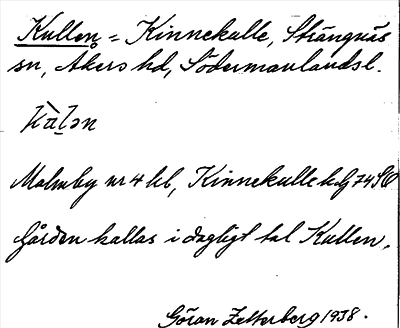 Kullen = Kinnekulle, Strängnäs
sn, Åkers hd, Södermanlandsl.
Malmby nr 4 hl, Kinnekulle
Gården kallas i dagligt tal Kullen.
Göran Zetterberg 1938.